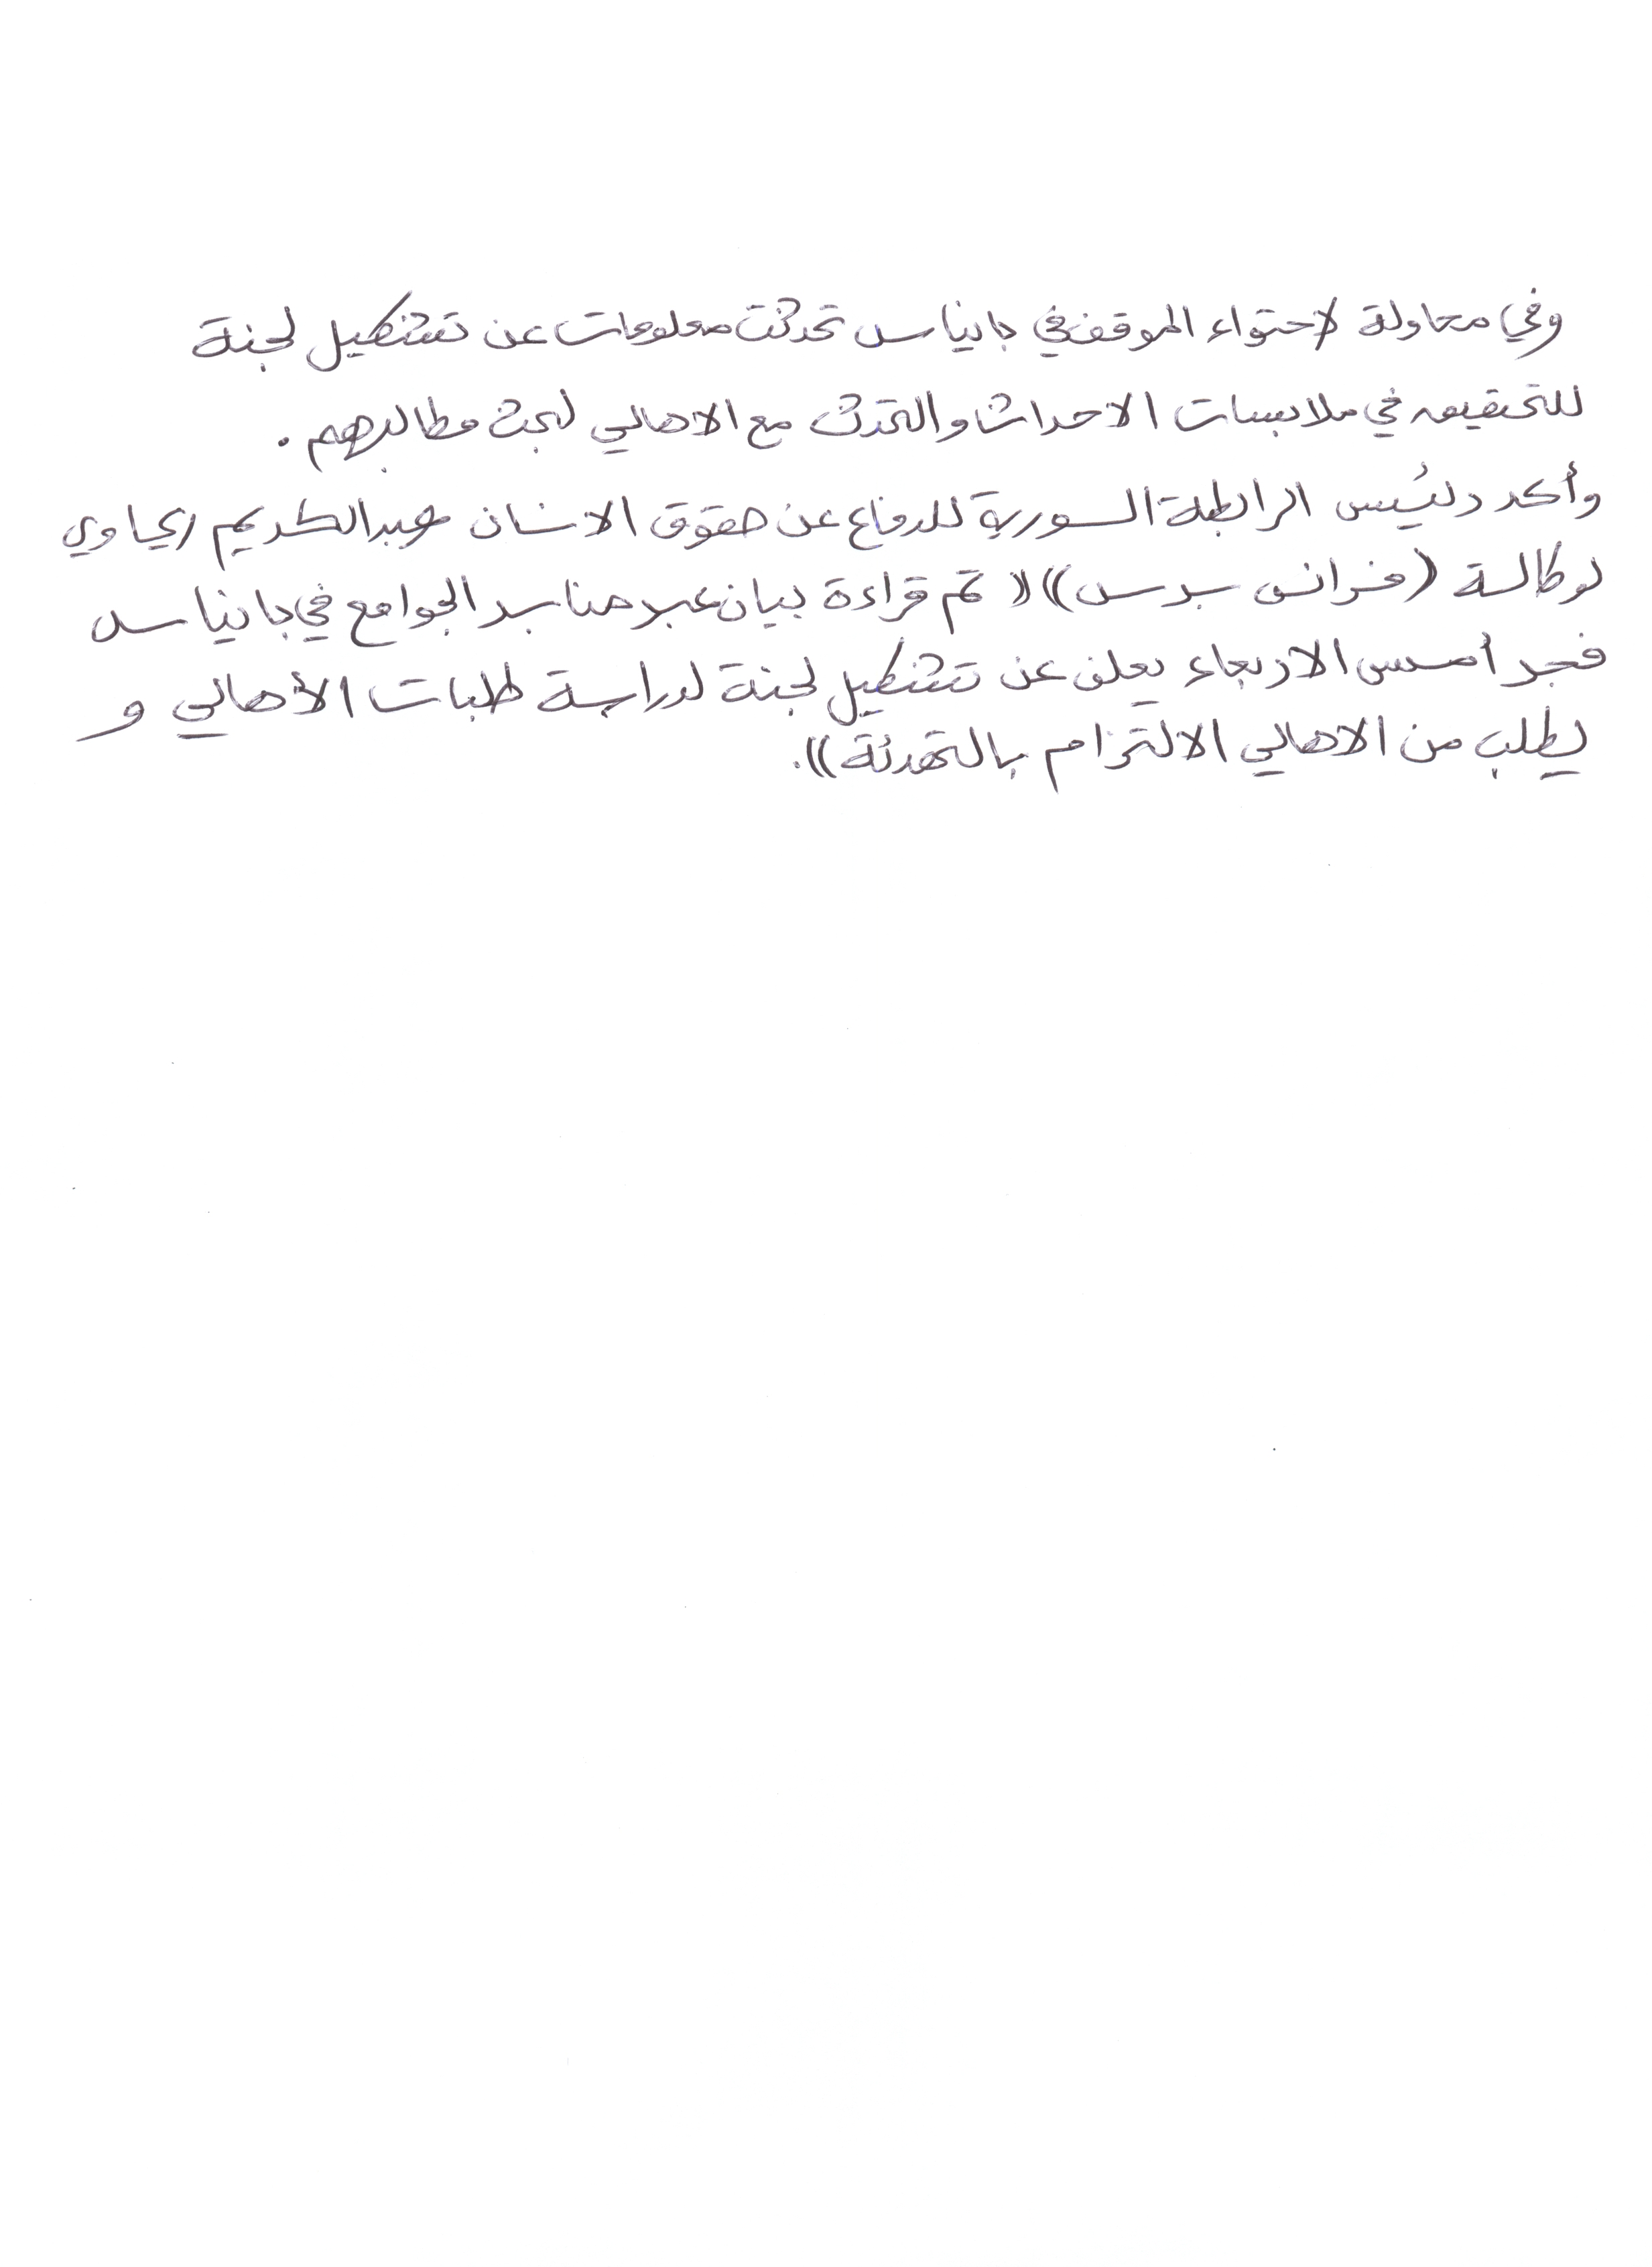 وفي محاولة لاحتواء الموقف في بانياس تحدثت معلومات عن تشكيل لجنة
للتحقيق في ملابسات الاحداث والتحدث مع الاهالي لبحث مطالبهم .
وأكد رئيس الرابطة السورية للدفاع عن حقوق الانسان عبدالكريم ريحاوي
لوكالة (فرانس برس)) (( تم قراءة بيان عبر منابر الجوامع في بانياس
فجر أمس الاربعاء يعلن عن تشكيل لجنة لدراسة طلبات الأهالي و
يطلب من الاهالي الالتزام بالتهدئة)).